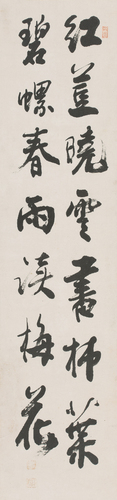 紅荳曉雲書柿葉
碧螺春雨讀梅花